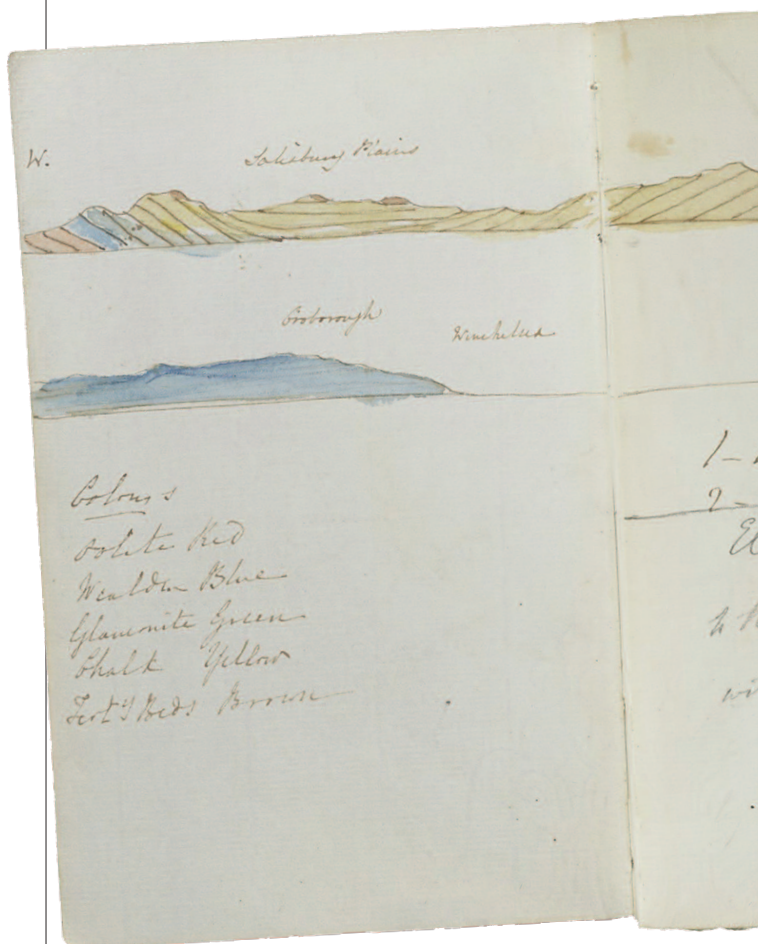 W.
Salisbury Plains
Winchelsea
Colours
Oolite Red
Wealden Blue
Glauconite Green
Chalk Yellow
Terty Beds Brown
1 -
2 -
wi